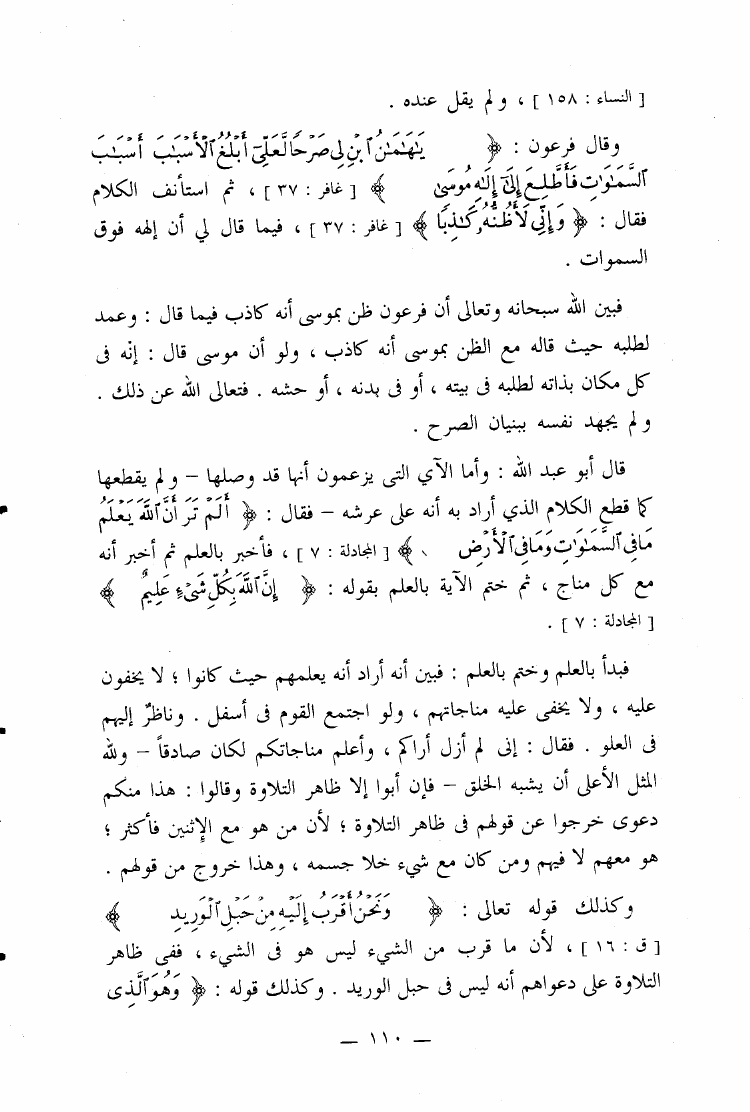 [ النساء : ١٥٨ ] ، ولم يقل عنده .
وقال فرعون : ﴿ يَٰهَٰمَٰنُ ٱبْنِ لِى صَرْحًا لَّعَلِّىٓ أَبْلُغُ ٱلْأَسْبَٰبَ أَسْبَٰبَ
ٱلسَّمَٰوَٰتِ فَأَطَّلِعَ إِلَىٰٓ إِلَٰهِ مُوسَىٰ ﴾ [ غافر : ٣٧ ] ، ثم استأنف الكلام
فقال : ﴿ وَإِنِّى لَأَظُنُّهُۥ كَٰذِبًا ﴾ [ غافر : ٣٧ ] ، فيما قال لي أن إلهه فوق
السموات .
فبين الله سبحانه وتعالى أن فرعون ظن بموسى أنه كاذب فيما قال : وعمد
لطلبه حيث قاله مع الظن بموسى أنه كاذب ، ولو أن موسى قال : إنّه فى
كل مكان بذاته لطلبه فى بيته ، أو فى بدنه ، أو حشه . فتعالى الله عن ذلك .
ولم يجهد نفسه ببنيان الصرح .
قال أبو عبد الله : وأما الآي التى يزعمون أنها قد وصلها – ولم يقطعها
كما قطع الكلام الذي أراد به أنه على عرشه – فقال : ﴿ أَلَمْ تَرَ أَنَّ ٱللَّهَ يَعْلَمُ
مَا فِى ٱلسَّمَٰوَٰتِ وَمَا فِى ٱلْأَرْضِ ﴾ [ المجادلة : ٧ ] ، فأخبر بالعلم ثم أخبر أنه
مع كل مناج ، ثم ختم الآية بالعلم بقوله : ﴿ إِنَّ ٱللَّهَ بِكُلِّ شَىْءٍ عَلِيمٌ ﴾
[ المجادلة : ٧ ] .
فبدأ بالعلم وختم بالعلم : فبين أنه أراد أنه يعلمهم حيث كانوا ؛ لا يخفون
عليه ، ولا يخفى عليه مناجاتهم ، ولو اجتمع القوم فى أسفل . وناظرٌ إليهم
فى العلو . فقال : إنى لم أزل أراكم ، وأعلم مناجاتكم لكان صادقاً – ولله
المثل الأعلى أن يشبه الخلق – فإن أبوا إلا ظاهر التلاوة وقالوا : هذا منكم
دعوى خرجوا عن قولهم فى ظاهر التلاوة ؛ لأن من هو مع الإثنين فأكثر ؛
هو معهم لا فيهم ومن كان مع شيء خلا جسمه ، وهذا خروج من قولهم .
وكذلك قوله تعالى : ﴿ وَنَحْنُ أَقْرَبُ إِلَيْهِ مِنْ حَبْلِ ٱلْوَرِيدِ ﴾
[ ق : ١٦ ] ، لأن ما قرب من الشيء ليس هو فى الشيء ، ففى ظاهر
التلاوة على دعواهم أنه ليس فى حبل الوريد . وكذلك قوله : ﴿ وَهُوَ ٱلَّذِى
— ١١٠ —